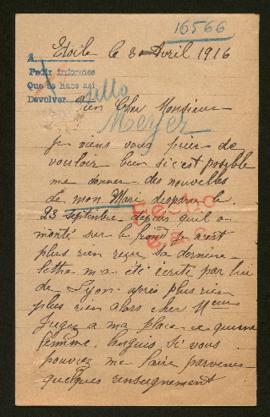 16566
Etoile le 3 Avril 1916
A
Pedir informes
Que se hace así
Devolver.
Cher Monsieur
Meyer
Je viens vous prier de
vouloir bien si c'est possible
me donner des nouvelles
de mon Mari disparu le
23 septembre depuis qu'il a
monté sur le front je n'est
plus rien reçu la dernière
lettre m a été écrite par lui
de Lyon après plus rien
plus rien alors cher Mr
Jugez a ma place ce qu'une
femme languis si vous
pouviez me faire parvenir
quelques renseignement